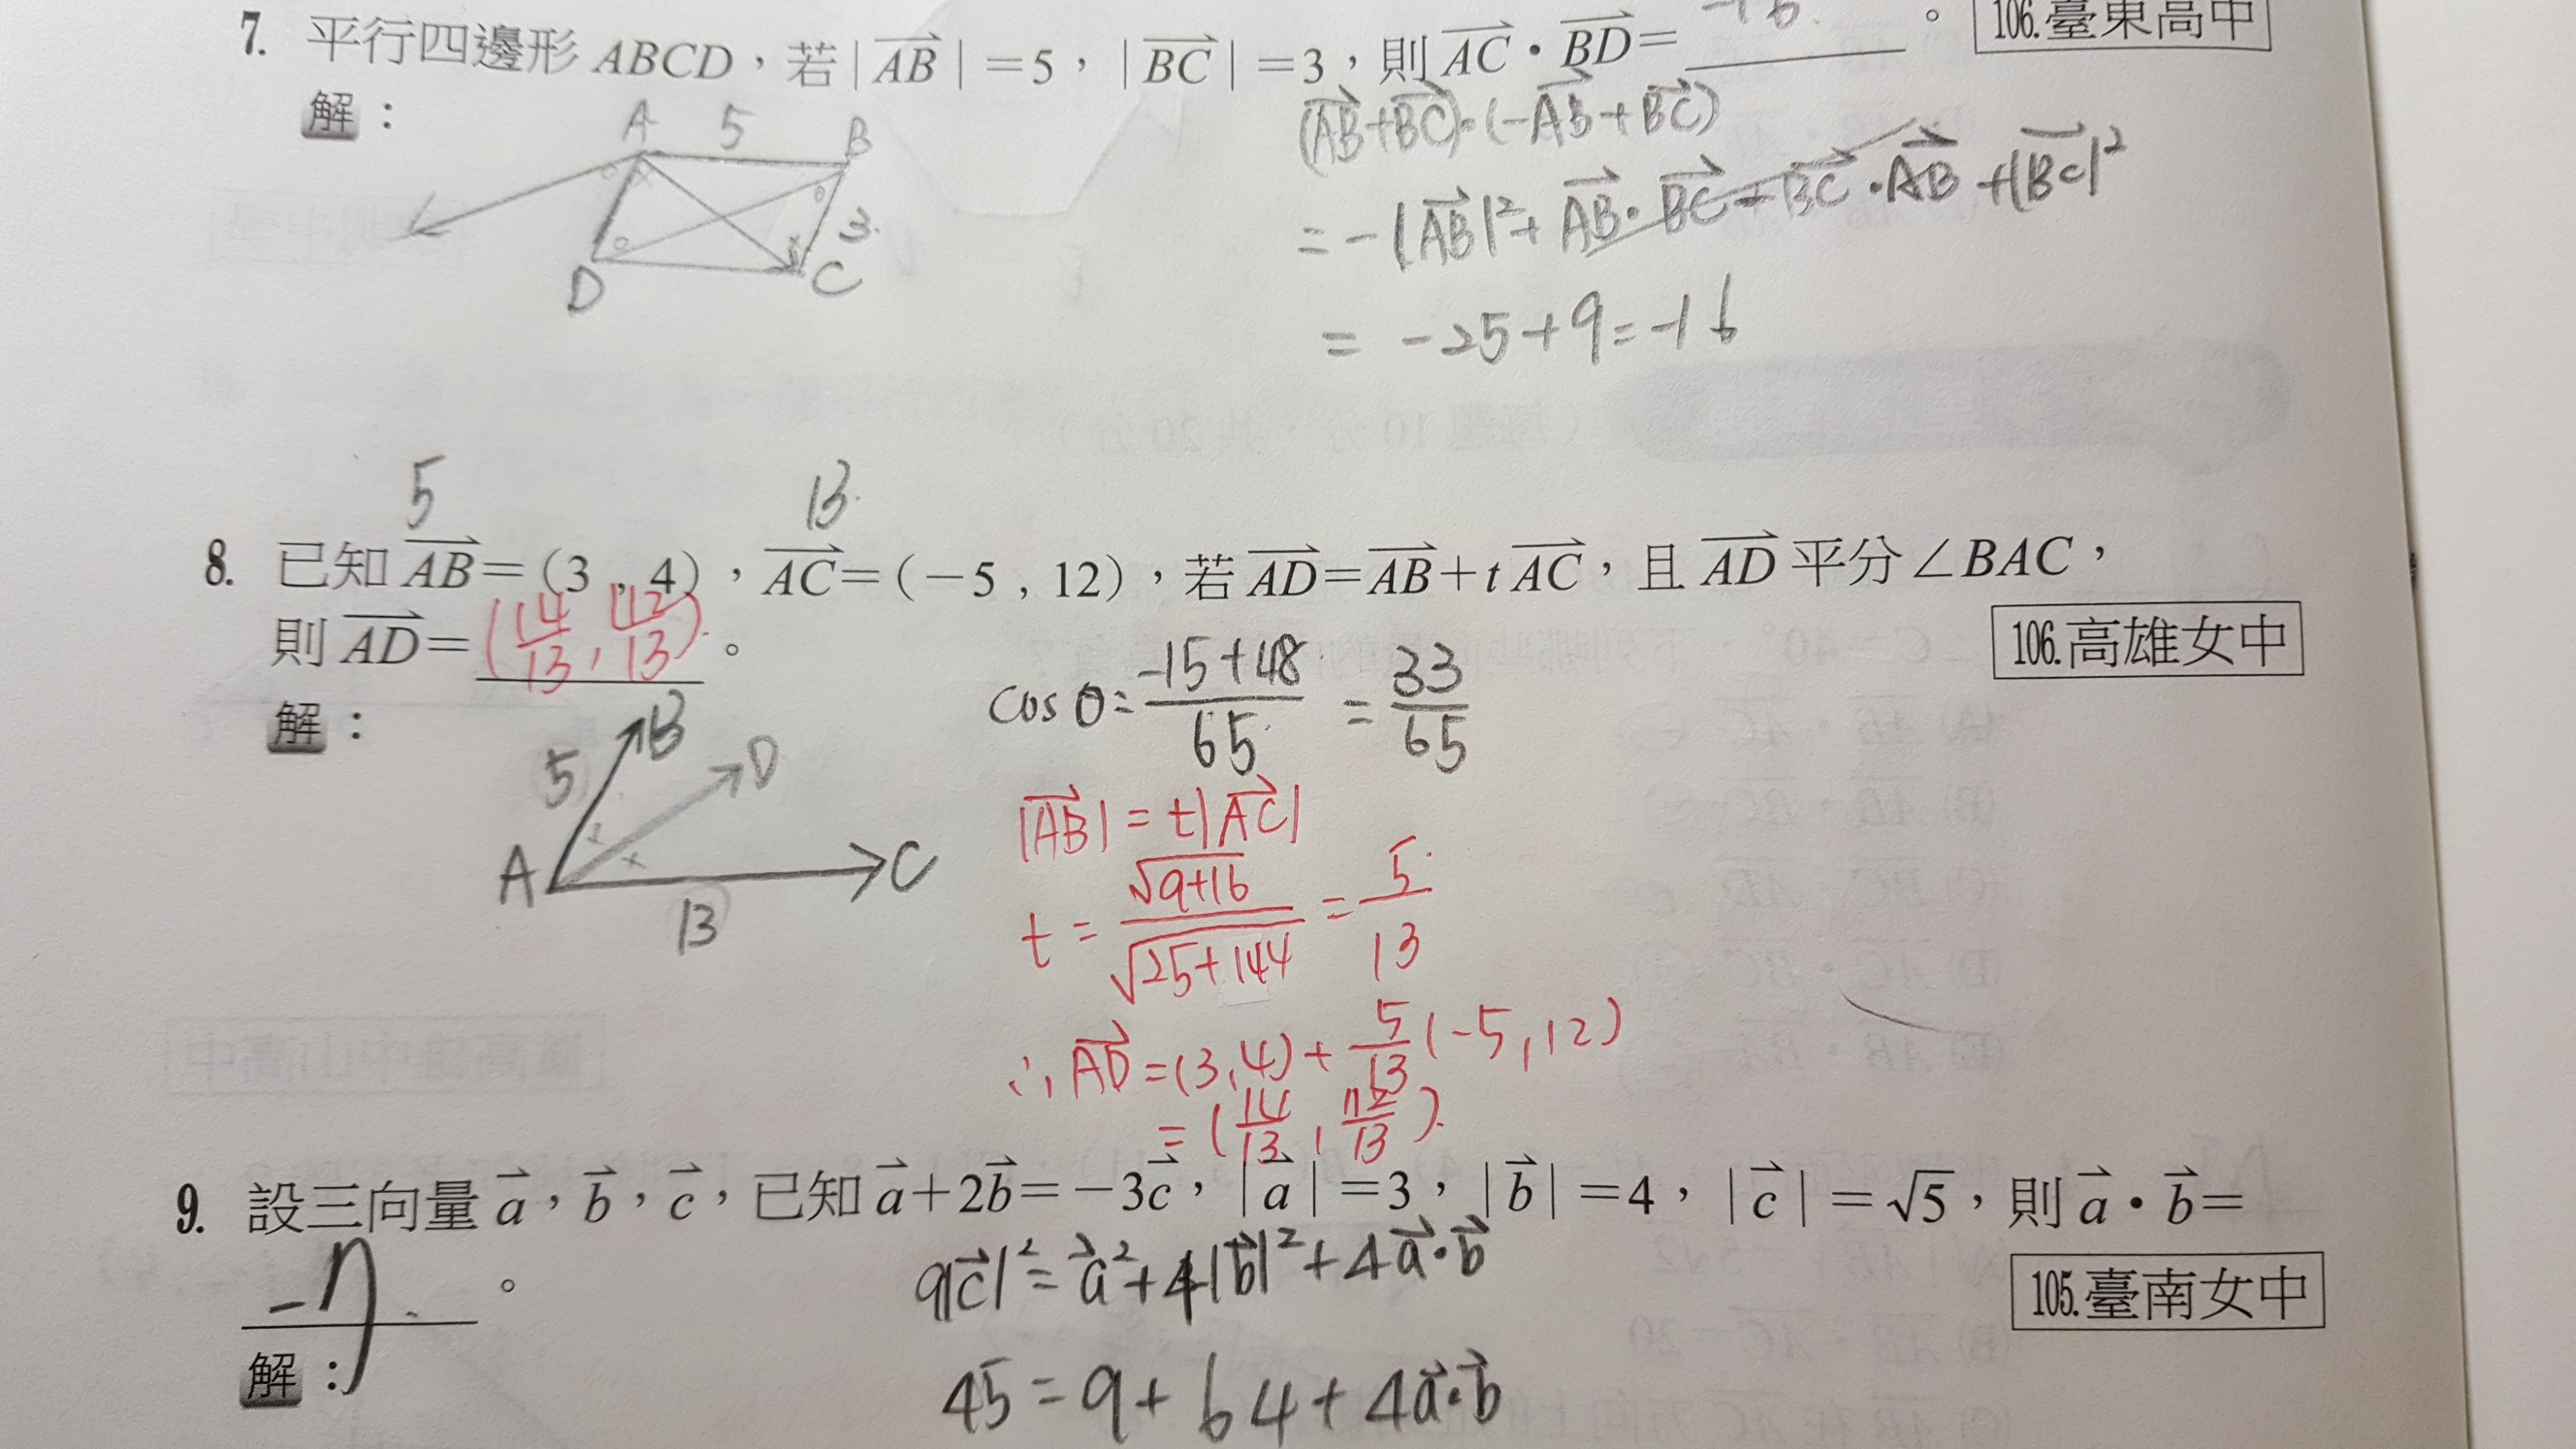 7. 平行四邊形 ABCD，若|AB|=5，|BC|=3，則 AC·BD= -16 。 106.臺東高中
解：
A 5 B
3
D C
(AB+BC)·(-AB+BC)
= -|AB|²+AB·BC-BC·AB+|BC|²
= -25+9=-16
5 13
8. 已知 AB=(3，4)，AC=(-5，12)，若 AD=AB+tAC，且 AD 平分∠BAC，
則 AD= (14/13, 112/13) 。 106.高雄女中
解：
5 B D
A 13 C
cosθ= (-15+48)/65 = 33/65
|AB| = t|AC|
t = √(9+16)/√(25+144) = 5/13
∴AD=(3,4)+5/13(-5,12)
=(14/13, 112/13).
9. 設三向量 a，b，c，已知 a+2b=-3c，|a|=3，|b|=4，|c|=√5，則 a·b=
-7 。 105.臺南女中
解：
9|c|²=a²+4|b|²+4a·b
45=9+64+4a·b